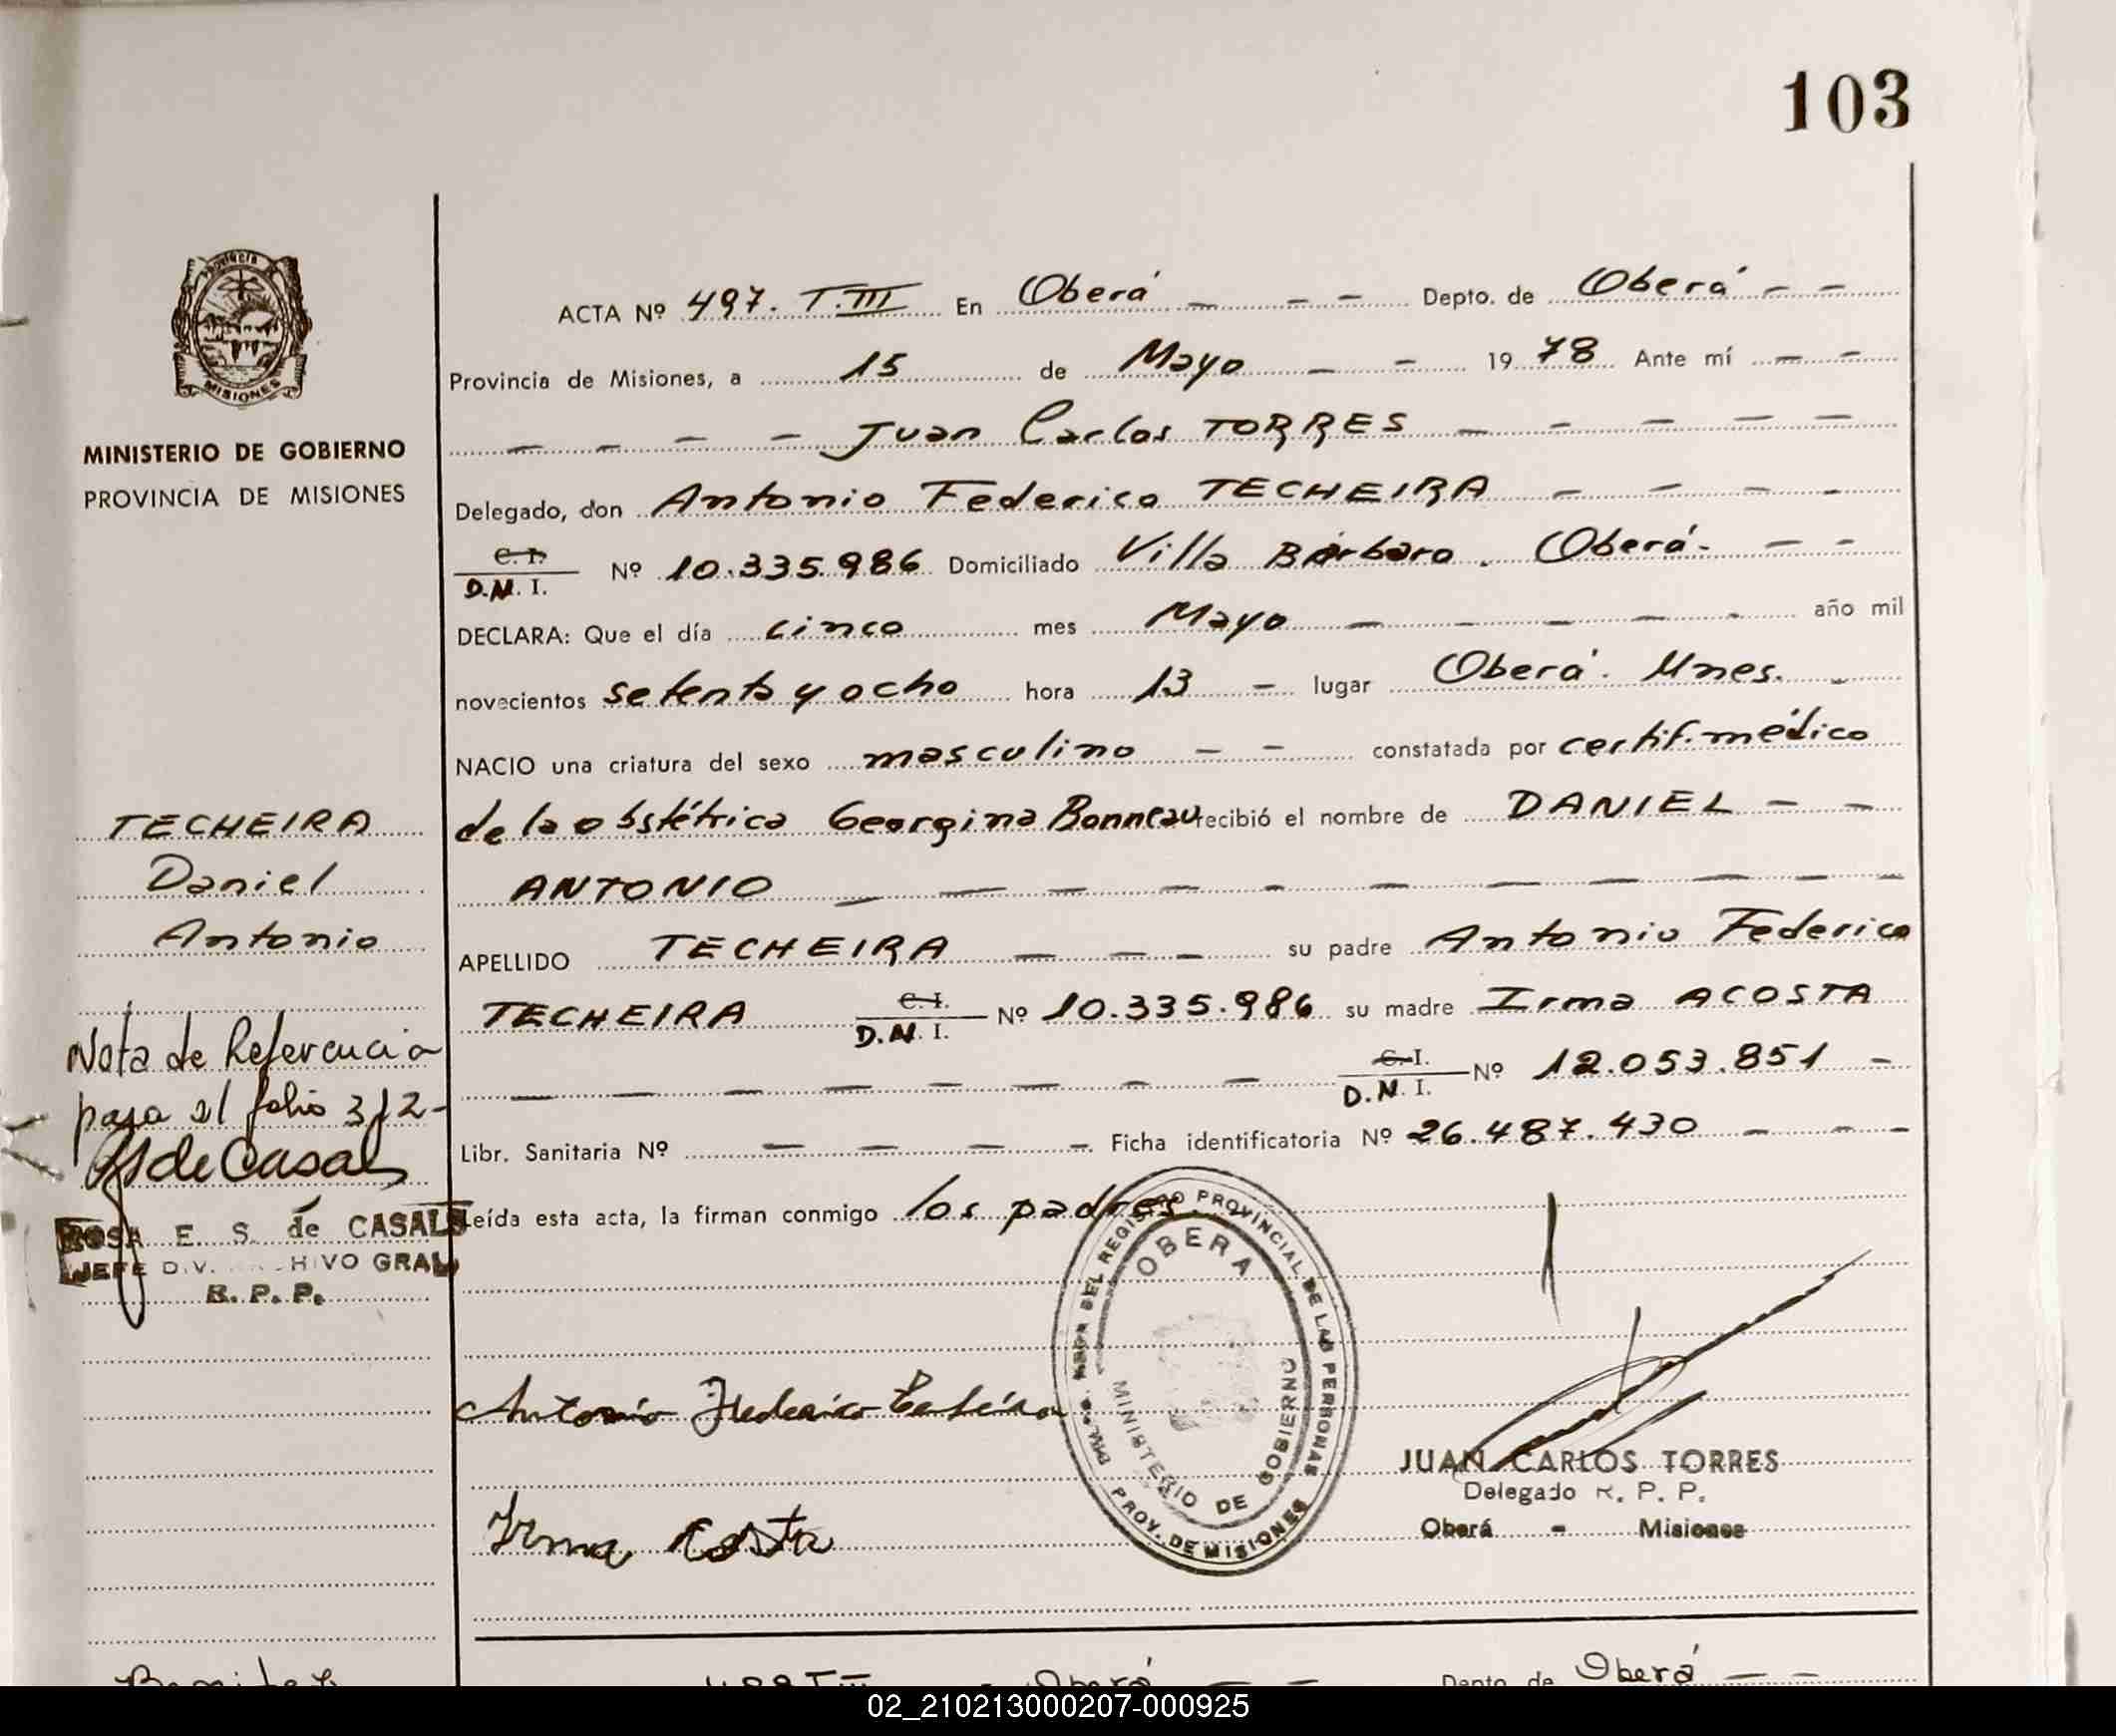 103
Provincia de
MISIONES
MINISTERIO DE GOBIERNO
PROVINCIA DE MISIONES
ACTA Nº 497. T.III En Oberá — — — Depto. de Oberá — —
Provincia de Misiones, a 15 de Mayo — — 1978 Ante mí — —
— — — — Juan Carlos TORRES — — — — —
Delegado, don Antonio Federico TECHEIRA — — — —
C.I.
D.N.I. Nº 10.335.986 Domiciliado Villa Bárbaro. Oberá. — —
DECLARA: Que el día cinco mes Mayo — — — — — año mil
novecientos setenta y ocho hora 13 — lugar Oberá. Mnes. —
NACIO una criatura del sexo masculino — — constatada por certif. médico
de la obstétrica Georgina Bonneau recibió el nombre de DANIEL — —
ANTONIO — — — — — — — — — —
APELLIDO TECHEIRA — — — su padre Antonio Federico
TECHEIRA C.I. D.N.I. Nº 10.335.986 su madre Irma ACOSTA
— — — — — — — — C.I. D.N.I. Nº 12.053.851 —
Libr. Sanitaria Nº — — — — Ficha identificatoria Nº 26.487.430 — — —
Leída esta acta, la firman conmigo los padres.
TECHEIRA
Daniel
Antonio
Nota de Referencia
pasa al folio 312-
de Casals
ROSA E. S. de CASALS
JEFE DIV. ARCHIVO GRAL
R. P. P.
DEL REGISTRO PROVINCIAL DE LAS PERSONAS
OBERA
MINISTERIO DE GOBIERNO
PROV. DE MISIONES
Antonio Federico
Irma Acosta
JUAN CARLOS TORRES
Delegado R. P. P.
Oberá - Misiones
Oberá — — Depto. de Oberá — —
02_210213000207-000925